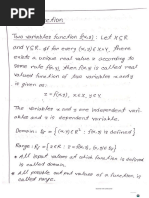 function
Two variables function f(x,y): Let X⊆R
and Y⊆R. If for every (x,y)∈X×Y, there
exists a unique real value z according to
some rule f(x,y), then f(x,y) is called real
valued function of two variables x and y
is given as:
z = f(x,y), x∈X, y∈Y.
The variables x and y are independent vari-
able and z is dependent variable.
Domain: D_f = {(x,y)∈R² : f(x,y) is defined}
Range: R_f = {z∈R : z = f(x,y) is defined}
• All input values at which function is defined
is called domain.
• All possible output values of a function is
called range.